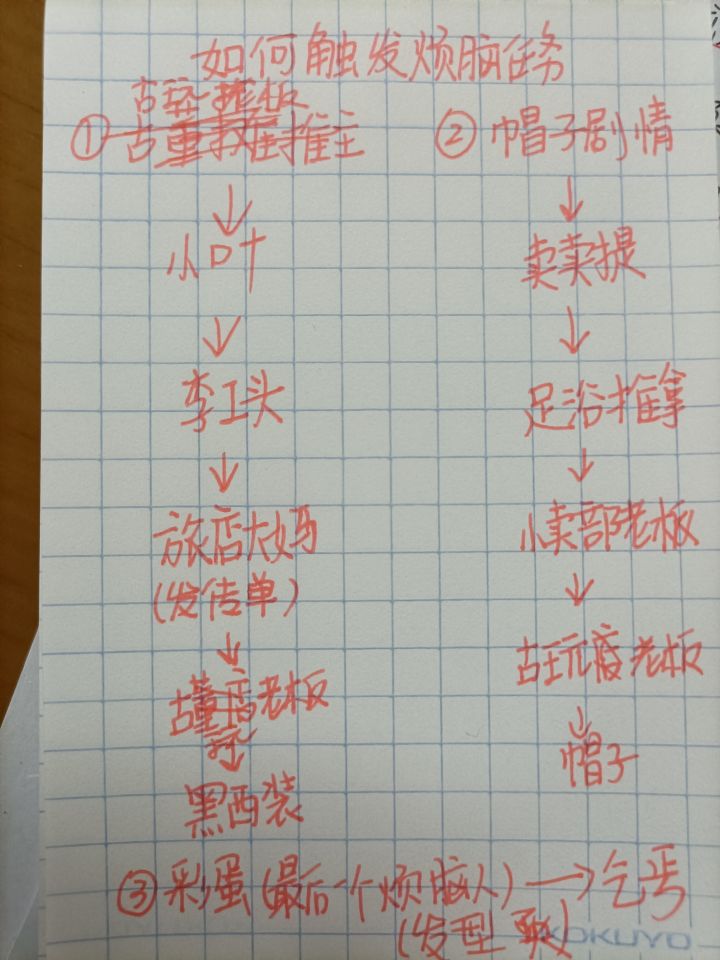 如何触发烦脑任务
① 古董推主
② 帽子剧情
小叶
卖卖提
李工头
足浴推拿
旅店大妈
(发传单)
小卖部老板
古董店老板
古玩店老板
黑西装
帽子
③ 彩蛋(最后一个烦脑人)→乞丐
(发型
KOKUYO